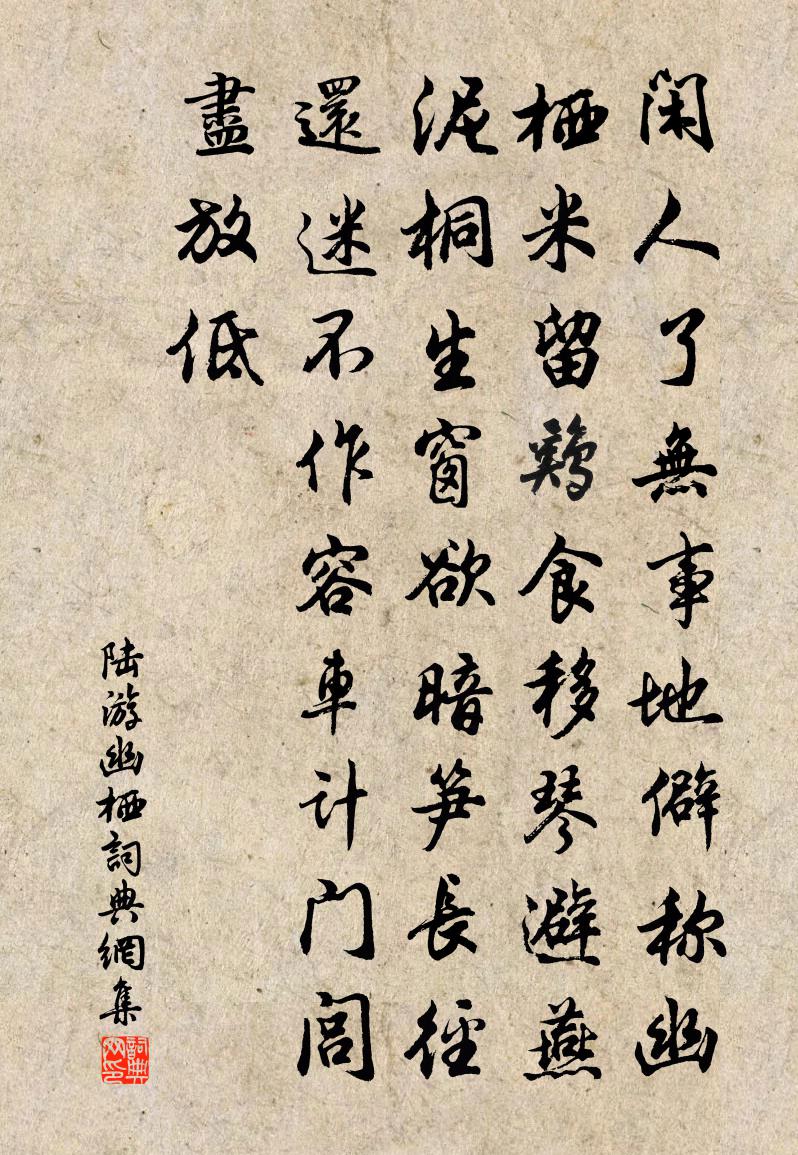 閑人了無事地僻称幽
栖米留鷄食移琴避燕
泥桐生窗欲暗笋長徑
還迷不作容車计门閭
盡放低
陆游幽栖詞典網集
詞典网印